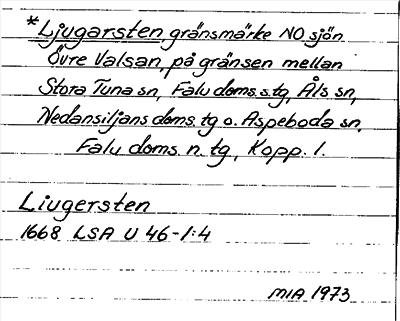 *Ljugarsten, gränsmärke NO sjön
Övre Valsan, på gränsen mellan
Stora Tuna sn, Falu doms. s. tg, Åls sn,
Nedansiljans doms. tg o. Aspeboda sn,
Falu doms. n. tg, Kopp. l.
Liugersten
1668 LSA U 46-1:4
MIA 1973